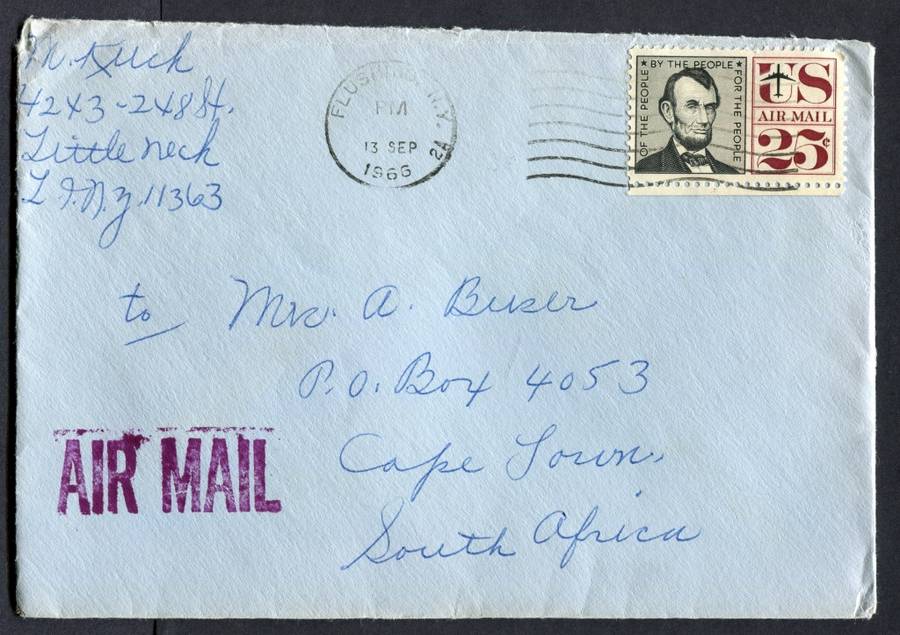 M. Kuck
4243-248 St.
Little Neck
L.I. N.Y. 11363
FLUSHING, N.Y.
PM
13 SEP
1966
2A
OF THE PEOPLE ★ BY THE PEOPLE ★ FOR THE PEOPLE
US
AIR MAIL
25¢
to Mrs. A. Buser
P.O. Box 4053
Cape Town,
South Africa
AIR MAIL